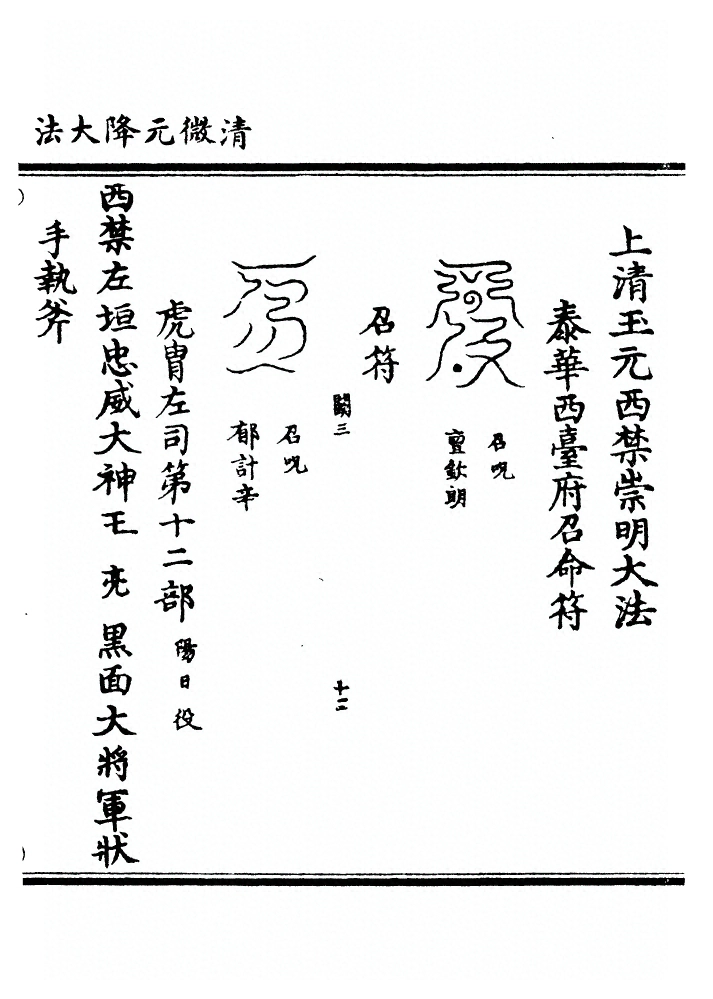 清微元降大法
上清玉元西禁崇明大法
泰華西臺府召命符
召呪
亶欽明
召符
闕三
十二
召呪
郁計辛
虎冑左司第十二部 陽日役
西禁左垣忠威大神王 亮 黑面大將軍狀
手執斧